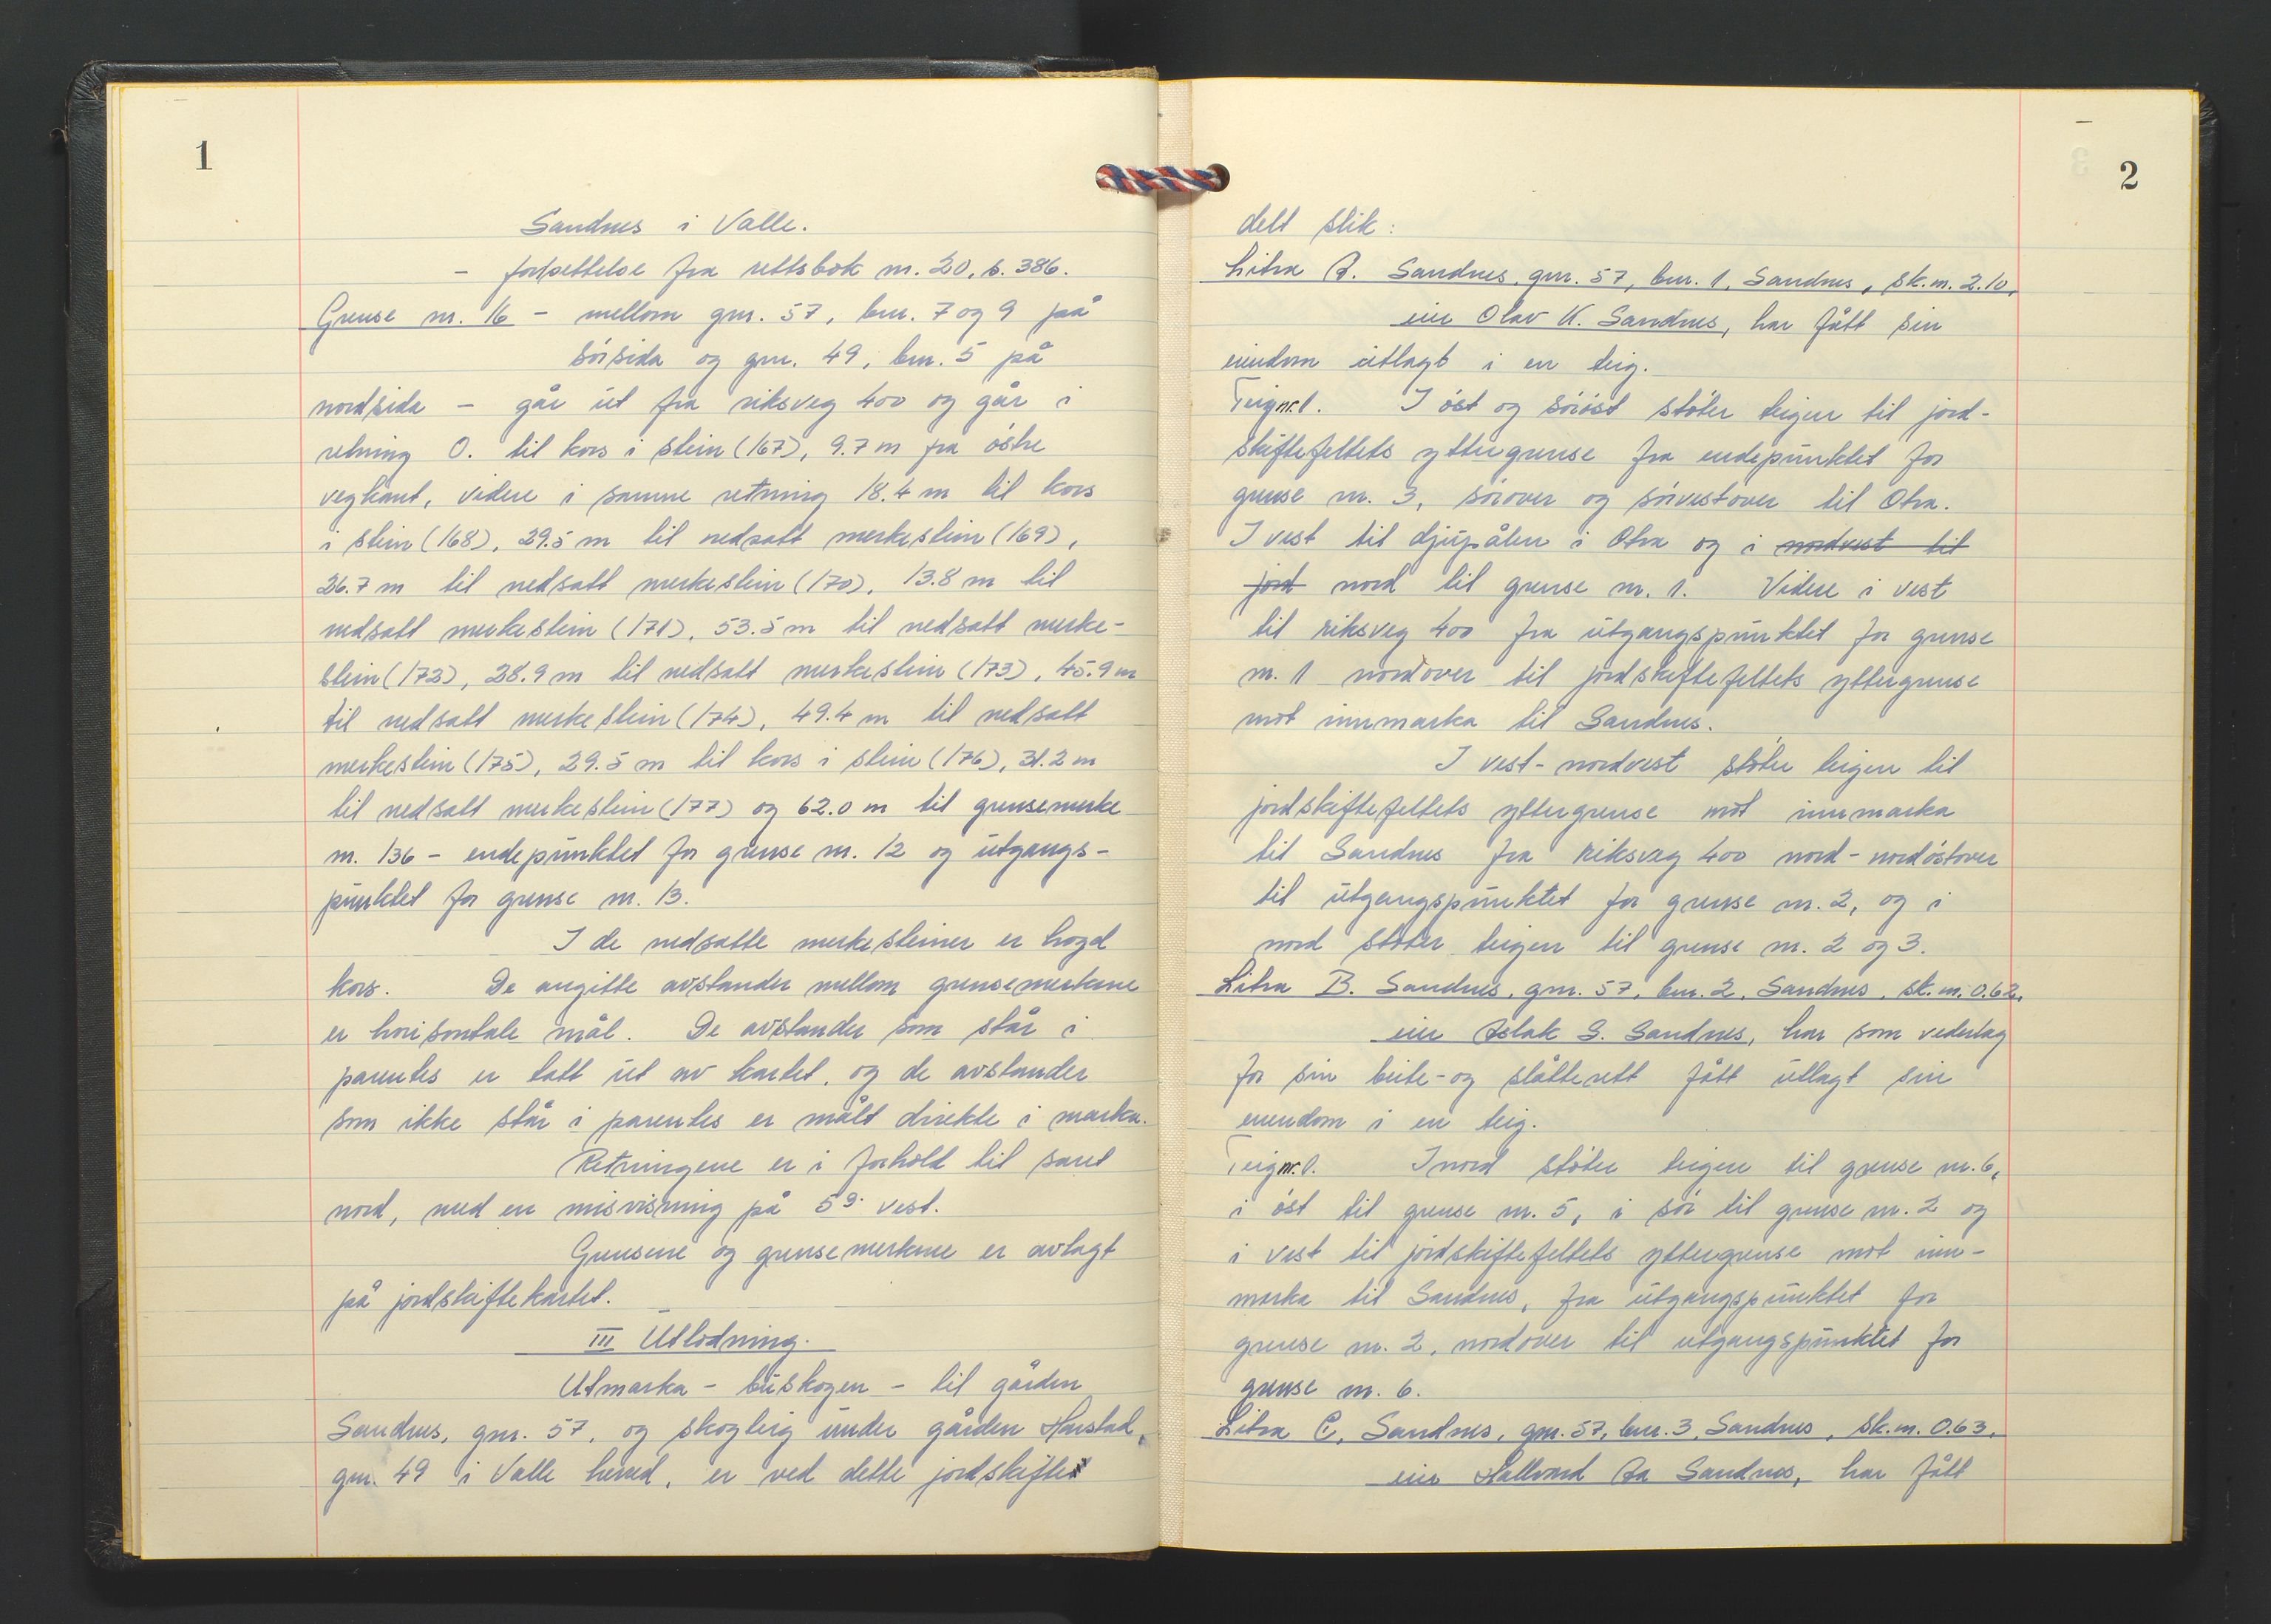 1
Sandnes i Valle.
- fortsettelse fra rettsbok nr. 20, s. 386.
Grense nr. 16 - mellom gnr. 57, bnr. 7 og 9 på
sörsida og gnr. 49, bnr. 5 på
nordsida - går ut fra riksveg 400 og går i
retning O. til kors i stein (167), 9.7 m fra östre
vegkant, videre i samme retning 18.4 m til kors
i stein (168), 29.5 m til nedsatt merkestein (169),
26.7 m til nedsatt merkestein (170), 13.8 m til
nedsatt merkestein (171), 53.5 m til nedsatt merke-
stein (172), 28.9 m til nedsatt merkestein (173), 45.9 m
til nedsatt merkestein (174), 49.4 m til nedsatt
merkestein (175), 29.5 m til kors i stein (176), 31.2 m
til nedsatt merkestein (177) og 62.0 m til grensemerke
nr. 136 - endepunktet for grense nr. 12 og utgangs-
punktet for grense nr. 13.
I de nedsatte merkesteiner er hogd
kors. De angitte avstander mellom grensemerkene
er horisontale mål. De avstander som står i
parentes er tatt ut av kartet, og de avstander
som ikke står i parentes er målt direkte i marka.
Retningene er i forhold til sant
nord, med en misvisning på 5g. vest.
Grensene og grensemerkene er avlagt
på jordskiftekartet.
III Utlodning.
Utmarka - buskogen - til gården
Sandnes, gnr. 57, og skogteig under gården Harstad,
gnr. 49 i Valle herred, er ved dette jordskifte
2
delt slik:
Litra A. Sandnes, gnr. 57, bnr. 1, Sandnes, sk.m. 2.10,
eier Olav K. Sandnes, har fått sin
eiendom utlagt i en teig.
Teig nr. 1. I öst og söröst stöter teigen til jord-
skiftefeltets yttergrense fra endepunktet for
grense nr. 3, sörover og sörvestover til Otra.
I vest til djupålen i Otra og i nordvest til
jord nord til grense nr. 1. Videre i vest
til riksveg 400 fra utgangspunktet for grense
nr. 1 nordover til jordskiftefeltets yttergrense
mot innmarka til Sandnes.
I vest-nordvest stöter teigen til
jordskiftefeltets yttergrense mot innmarka
til Sandnes fra riksveg 400 nord-nordöstover
til utgangspunktet for grense nr. 2, og i
nord stöter teigen til grense nr. 2 og 3.
Litra B. Sandnes, gnr. 57, bnr. 2, Sandnes, sk.m. 0.62,
eier Aslak S. Sandnes, har som vederlag
for sin beite- og slåtterett fått utlagt sin
eiendom i en teig.
Teig nr. 1. I nord stöter teigen til grense nr. 6,
i öst til grense nr. 5, i sör til grense nr. 2 og
i vest til jordskiftefeltets yttergrense mot inn-
marka til Sandnes, fra utgangspunktet for
grense nr. 2, nordover til utgangspunktet for
grense nr. 6.
Litra C. Sandnes, gnr. 57, bnr. 3, Sandnes, sk.m. 0.63,
eier Hallvard Aa Sandnes, har fått